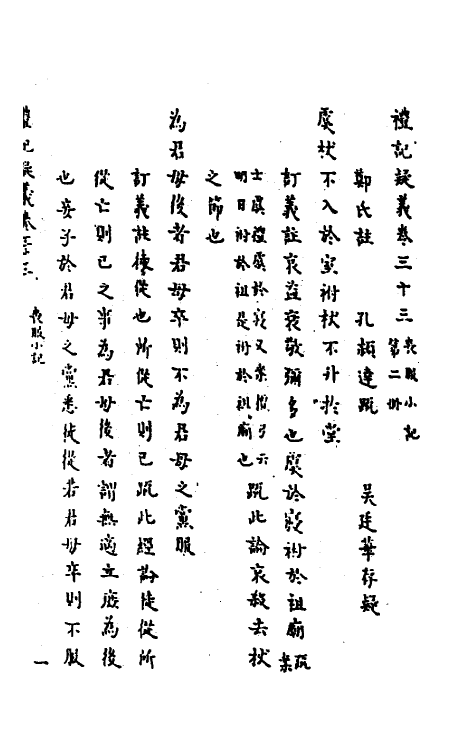 禮記疑義卷三十三 喪服小記第二冊
鄭氏註 孔穎達疏 吳廷華存疑
虞杖不入於室祔杖不升於堂
訂義註哀益衰敬彌多也虞於寢祔於祖廟 疏案
士虞禮虞於寢又案檀弓云明日祔於祖是祔於祖廟也 疏此論哀殺去杖
之節也
為君母後者君母卒則不為君母之黨服
訂義註徒從也所從亡則已疏此經論徒從所
從亡則已之事為君母後者謂無適立庶為後
也妾子於君母之黨悉徒從若君母卒則不服
禮記疑義卷三十三 喪服小記 一